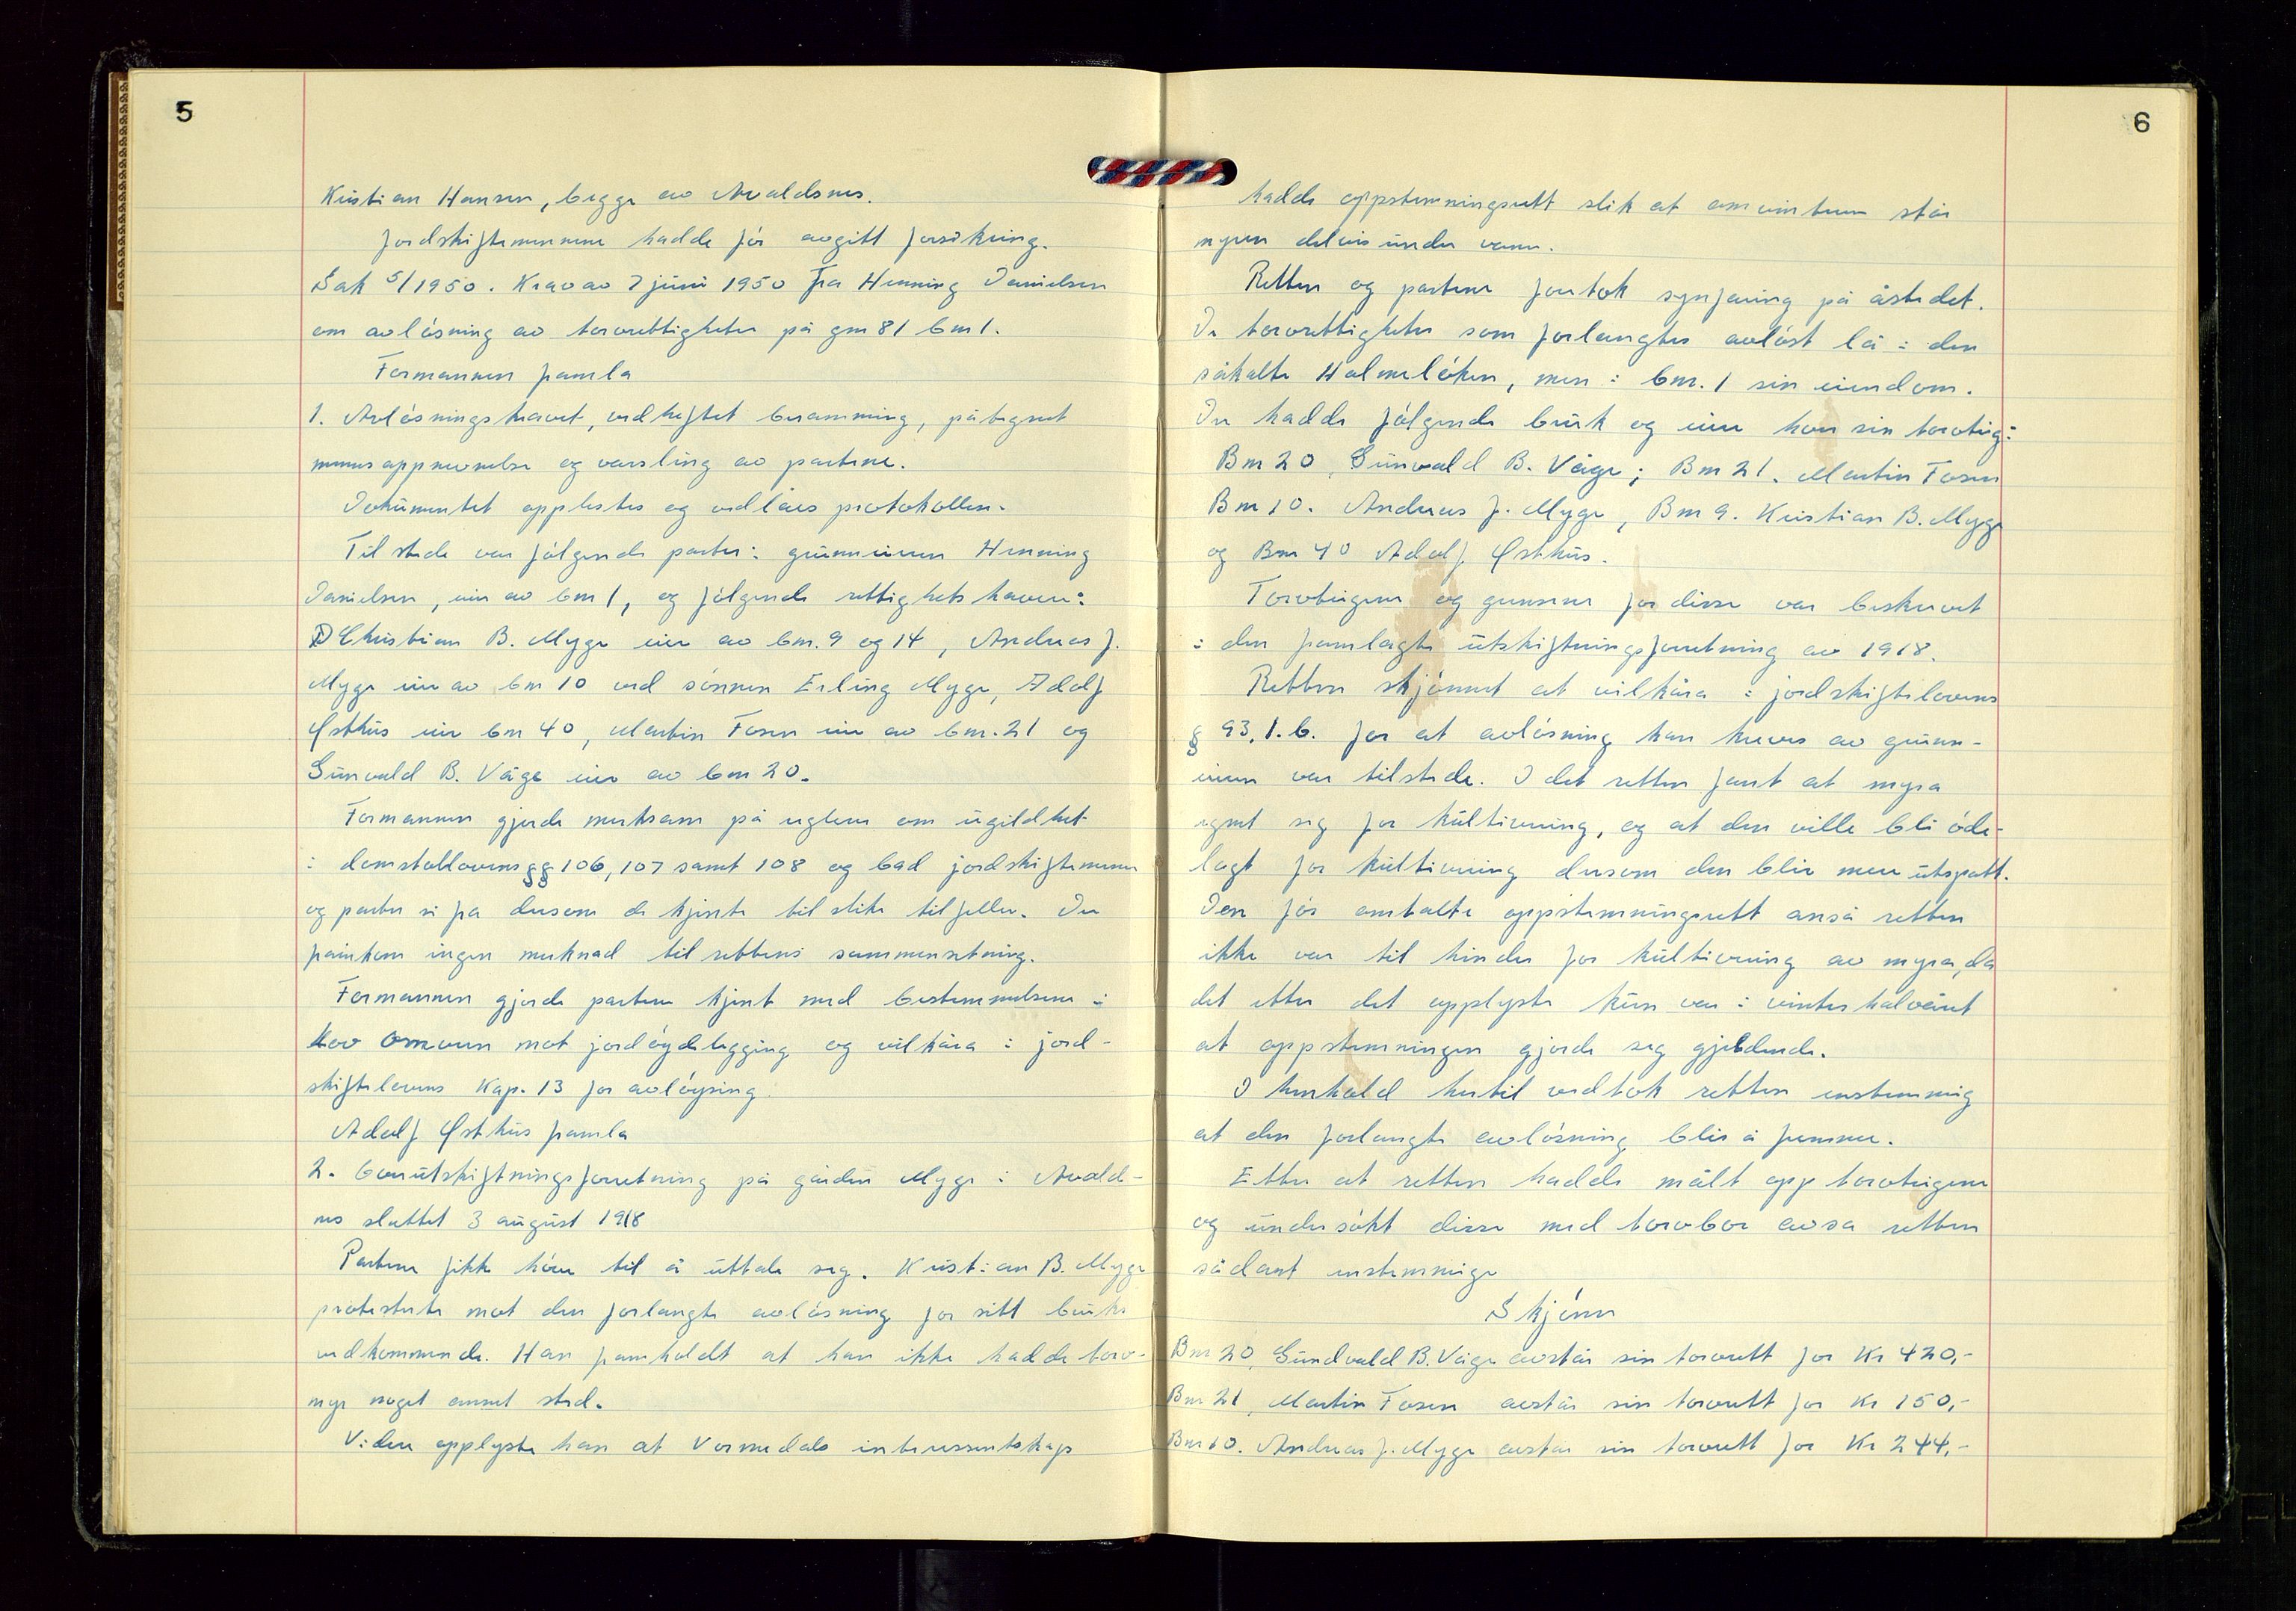 5
Kristian Hansen, begge av Avaldsnes.
Jordskiftemennene hadde før avgitt forsikring.
Sak 5/1950. Krav av 7 juni 1950 fra Henning Danielsen
om avløsning av torvrettigheter på gnr 81 bnr 1.
Formannen framla
1. Avløsningskravet, vedheftet beramming, påtegnet
mennsoppnevnelse og varsling av partene.
Dokumentet opplestes og vedlåes protokollen.
Til stede var følgende parter: grunneieren Henning
Danielsen, eier av bnr 1, og følgende rettighetshavere:
Christian B. Myge eier av bnr. 9 og 14, Andreas J.
Myge eier av bnr 10 ved sønnen Erling Myge, Adolf
Østhus eier bnr 40, Martin Fosen eier av bnr. 21 og
Gunvald B. Våge eier av bnr 20.
Formannen gjorde merksam på reglene om ugildhet
i domstollovens §§ 106, 107 samt 108 og bad jordskiftemenn
og parter si fra dersom de kjente til slike tilfeller. Der
framkom ingen merknad til rettens sammensetning.
Formannen gjorde partene kjent med bestemmelsene i
lov om vern mot jordøydelegging og vilkåra i jord-
skiftelovens Kap. 13 for avløysing
Adolf Østhus framla
2. bevutskiftningsforretning på gården Myge i Avalds-
nes sluttet 3 august 1918
Partene fikk høve til å uttale seg. Kristian B. Myge
protesterte mot den forlangte avløsning for sitt bruks
vedkommende. Han framholdt at han ikke hadde torv-
myr noget annet sted.
Videre opplyste han at Vormedals interessentskap
6
hadde oppstemningsrett slik at om vinteren står
myren delvis under vann.
Retten og partene foretok synfaring på åstedet.
De torvrettigheter som forlangtes avløst lå i den
såkalte Holmeløken, men i bnr. 1 sin eiendom.
Der hadde følgende bruk og eier hver sin torvteig:
Bnr 20, Gunvald B. Våge; Bnr 21. Martin Fosen
Bnr 10. Andreas J. Myge, Bnr 9. Kristian B. Myge
og Bnr 40 Adolf Østhus.
Torvteigene og grensene for disse var beskrevet
i den framlagte utskiftningsforretning av 1918.
Retten skjønnet at vilkåra i jordskiftelovens
§ 93.1.b. for at avløsning kan kreves av grunn-
eieren var tilstede. I det retten fant at myra
egnet seg for kultivering, og at den ville bli øde-
lagt for kultivering dersom den blir mere utspatt.
Den før omtalte oppstemningsrett anså retten
ikke var til hinder for kultivering av myra, da
det etter det opplyste kun var i vinterhalvåret
at oppstemningen gjorde seg gjeldende.
I henhold hertil vedtok retten enstemmig
at den forlangte avløsning blir å fremme.
Etter at retten hadde målt opp torvteigene
og undersøkt disse med torvbor avsa retten
sådant enstemmige
Skjønn
Bnr 20, Gundvald B. Våge avstår sin torvrett for Kr 420,-
Bnr 21, Martin Fosen avstår sin torvrett for Kr 150,-
Bnr 10. Andreas J. Myge avstår sin torvrett for Kr 244,-